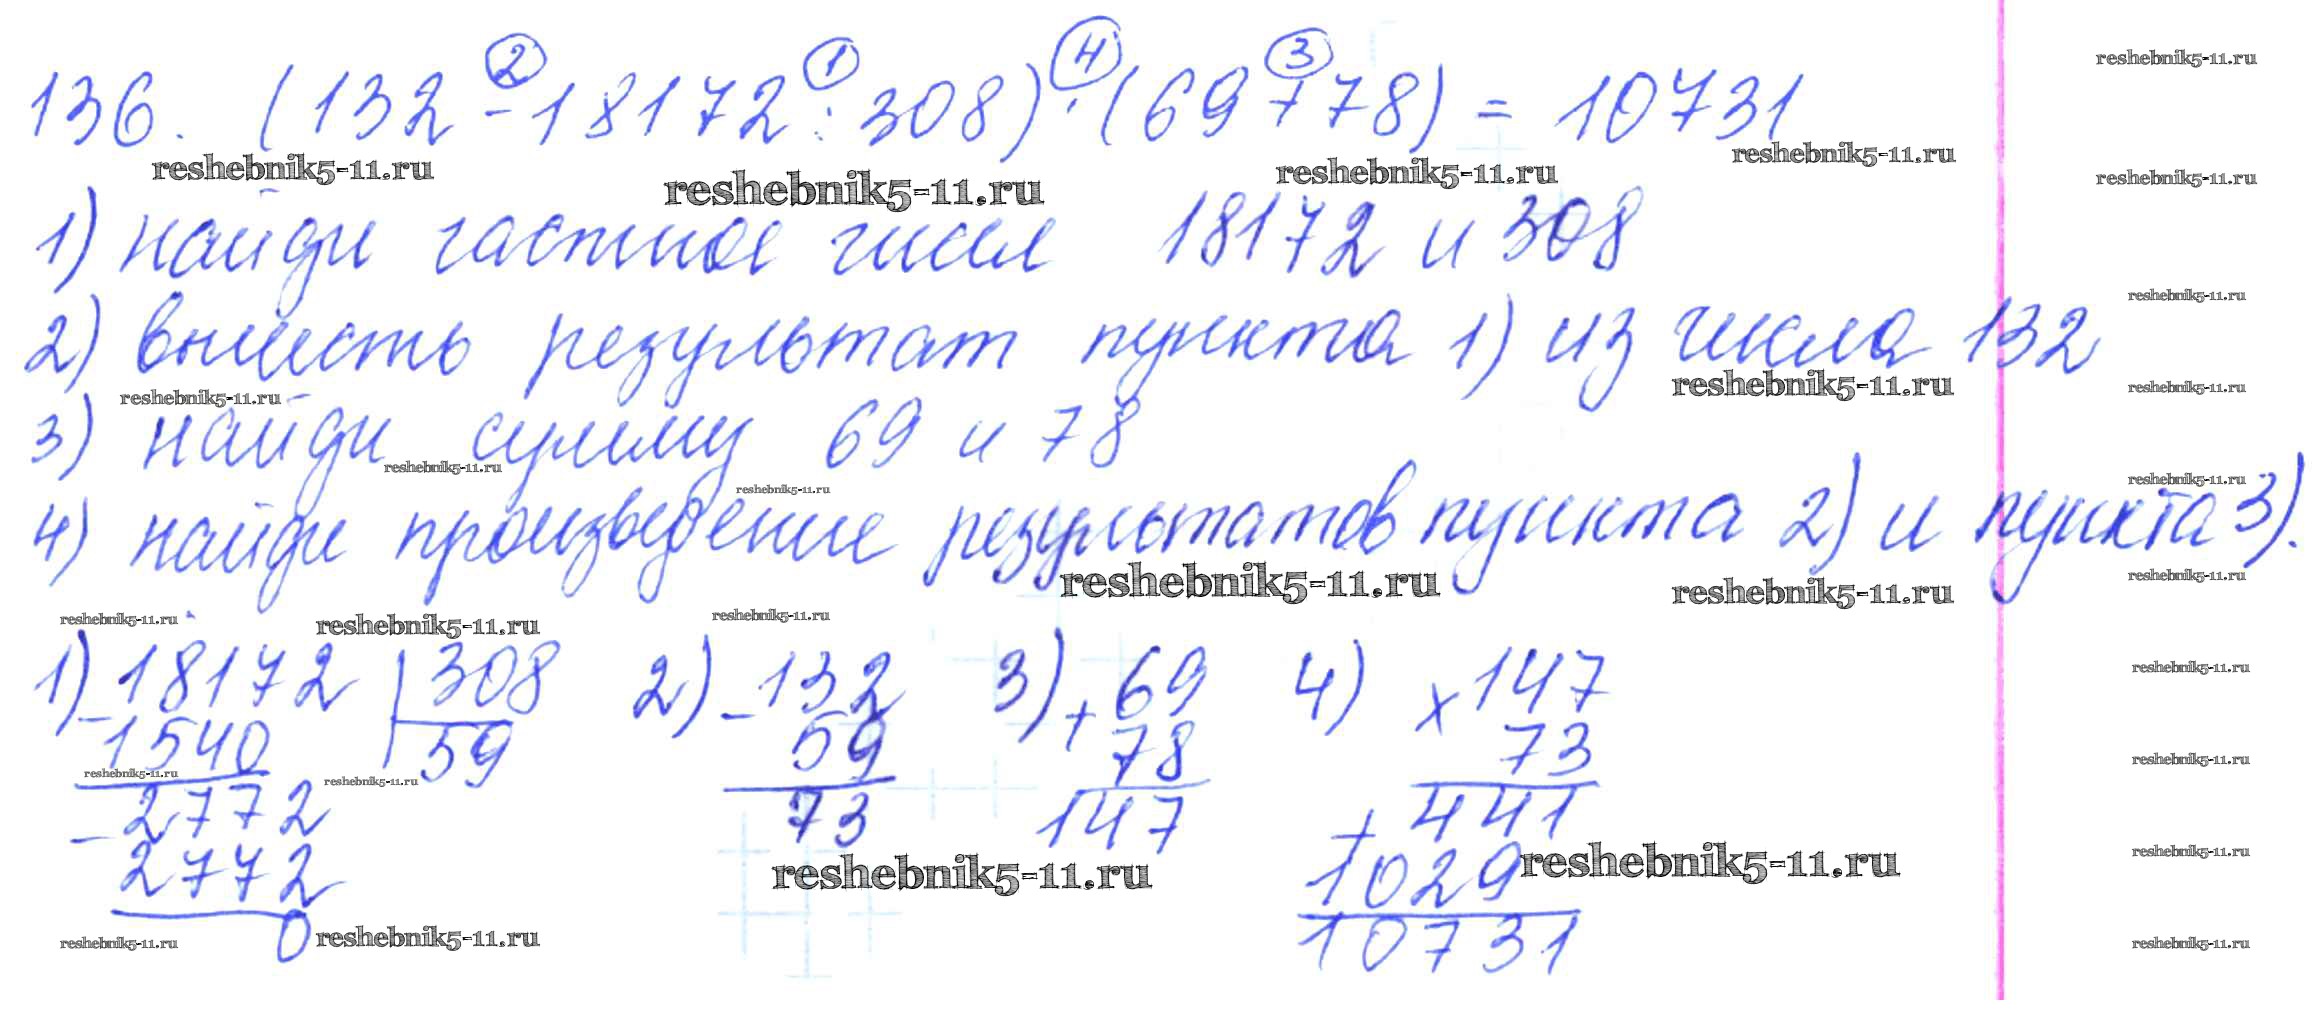 ② ① ④ ③
136. (132 - 18172 : 308) · (69 + 78) = 10731
reshebnik5-11.ru
reshebnik5-11.ru reshebnik5-11.ru reshebnik5-11.ru reshebnik5-11.ru reshebnik5-11.ru
1) найди частное чисел 18172 и 308
reshebnik5-11.ru
2) вычесть результат пункта 1) из числа 132
reshebnik5-11.ru reshebnik5-11.ru reshebnik5-11.ru
3) найди сумму 69 и 78
reshebnik5-11.ru reshebnik5-11.ru reshebnik5-11.ru
4) найди произведение результатов пункта 2) и пункта 3).
reshebnik5-11.ru reshebnik5-11.ru reshebnik5-11.ru
reshebnik5-11.ru reshebnik5-11.ru reshebnik5-11.ru
1) - 18172 308 2) - 132 3) + 69 4) × 147
reshebnik5-11.ru
1540 59 59 78 73
reshebnik5-11.ru reshebnik5-11.ru reshebnik5-11.ru
- 2772 73 147 + 441
2772 1029
reshebnik5-11.ru reshebnik5-11.ru reshebnik5-11.ru
0 10731
reshebnik5-11.ru reshebnik5-11.ru reshebnik5-11.ru